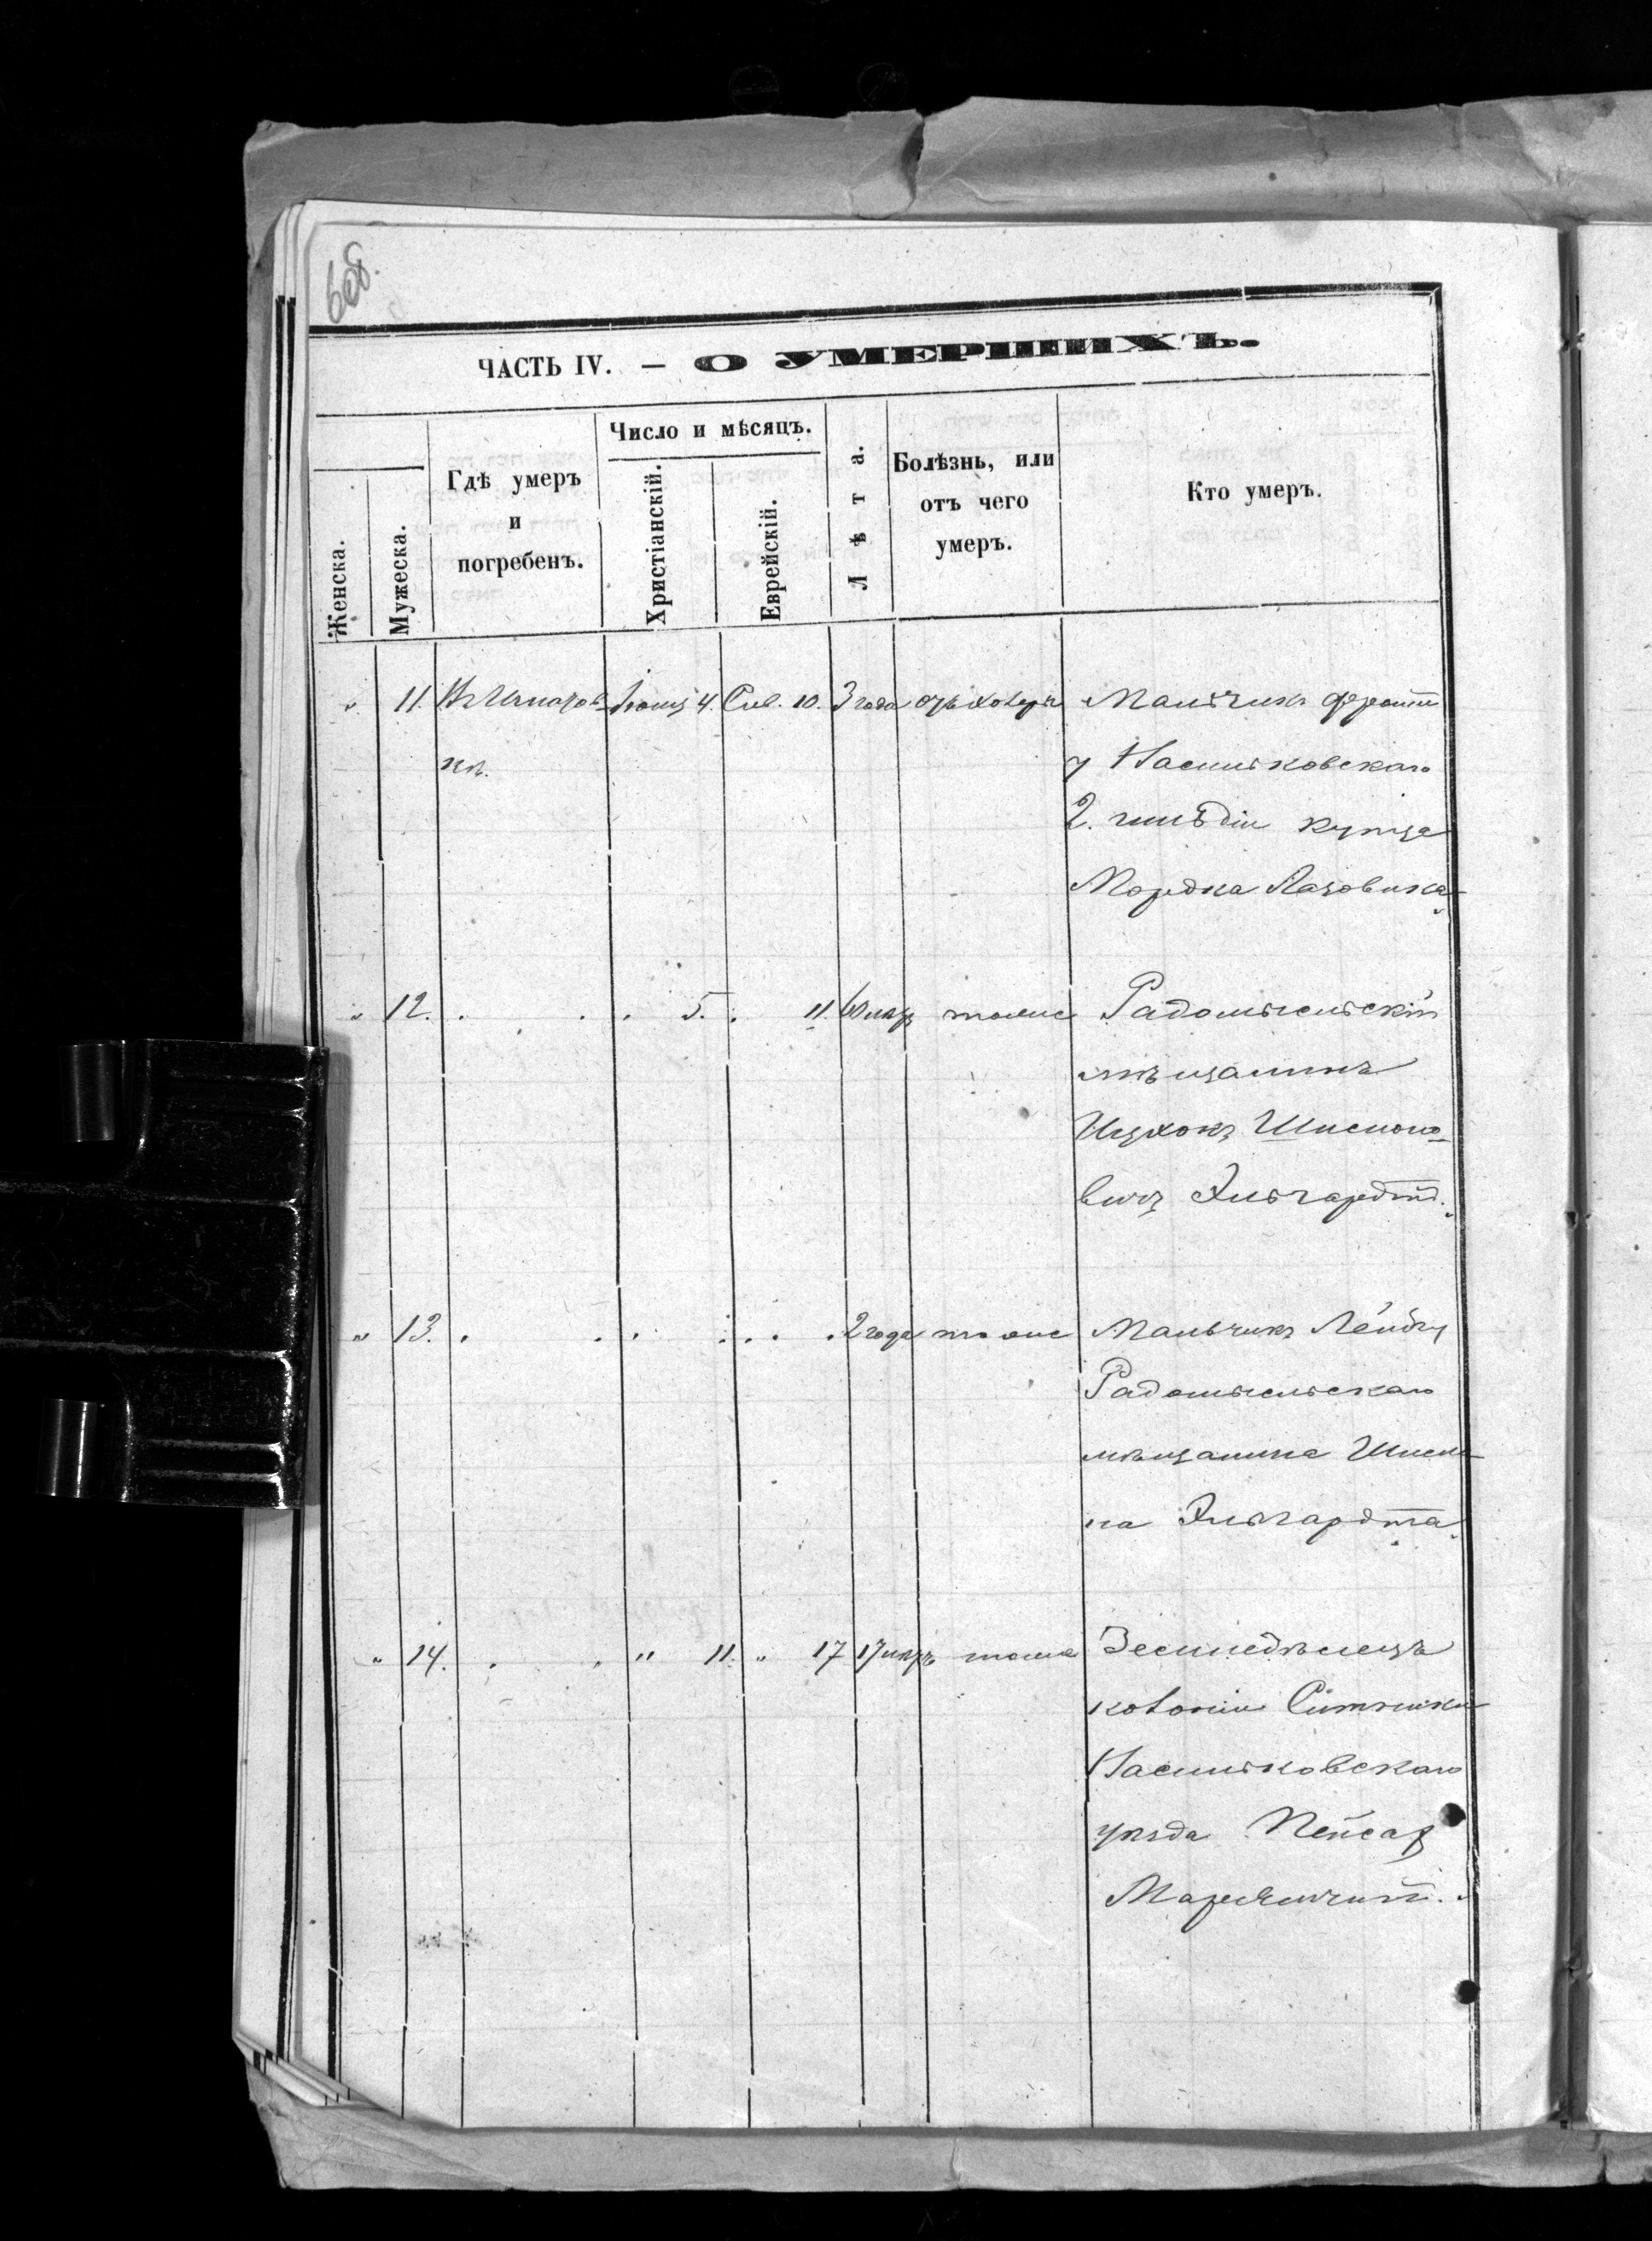 6об.
ЧАСТЬ IV. — О УМЕРШИХЪ.
Женска.
Мужеска.
Гдѣ умеръ
и
погребенъ.
Число и мѣсяцъ.
Христіанскій.
Еврейскій.
Лѣта.
Болѣзнь, или
отъ чего
умеръ.
Кто умеръ.
" 11. Въ Шполов- Іюня 4. Сив. 10. 3 года отъ холеры Мальчикъ
кѣ.
Васильковскаго
2. гильдіи купца
Мордка
" 12. 5. 11. 60 лѣтъ тоже Радомысльскій
мѣщанинъ
Ицхокъ Шлемо-
вичъ Эльгардтъ.
" 13. 2 года тоже Мальчикъ Лейбу
Радомысльскаго
мѣщанина
на Эльгардта.
" 14. " 11. " 17 17 лѣтъ тоже Земледѣлецъ
колоніи Ситняки
Васильковскаго
уѣзда Пейсах